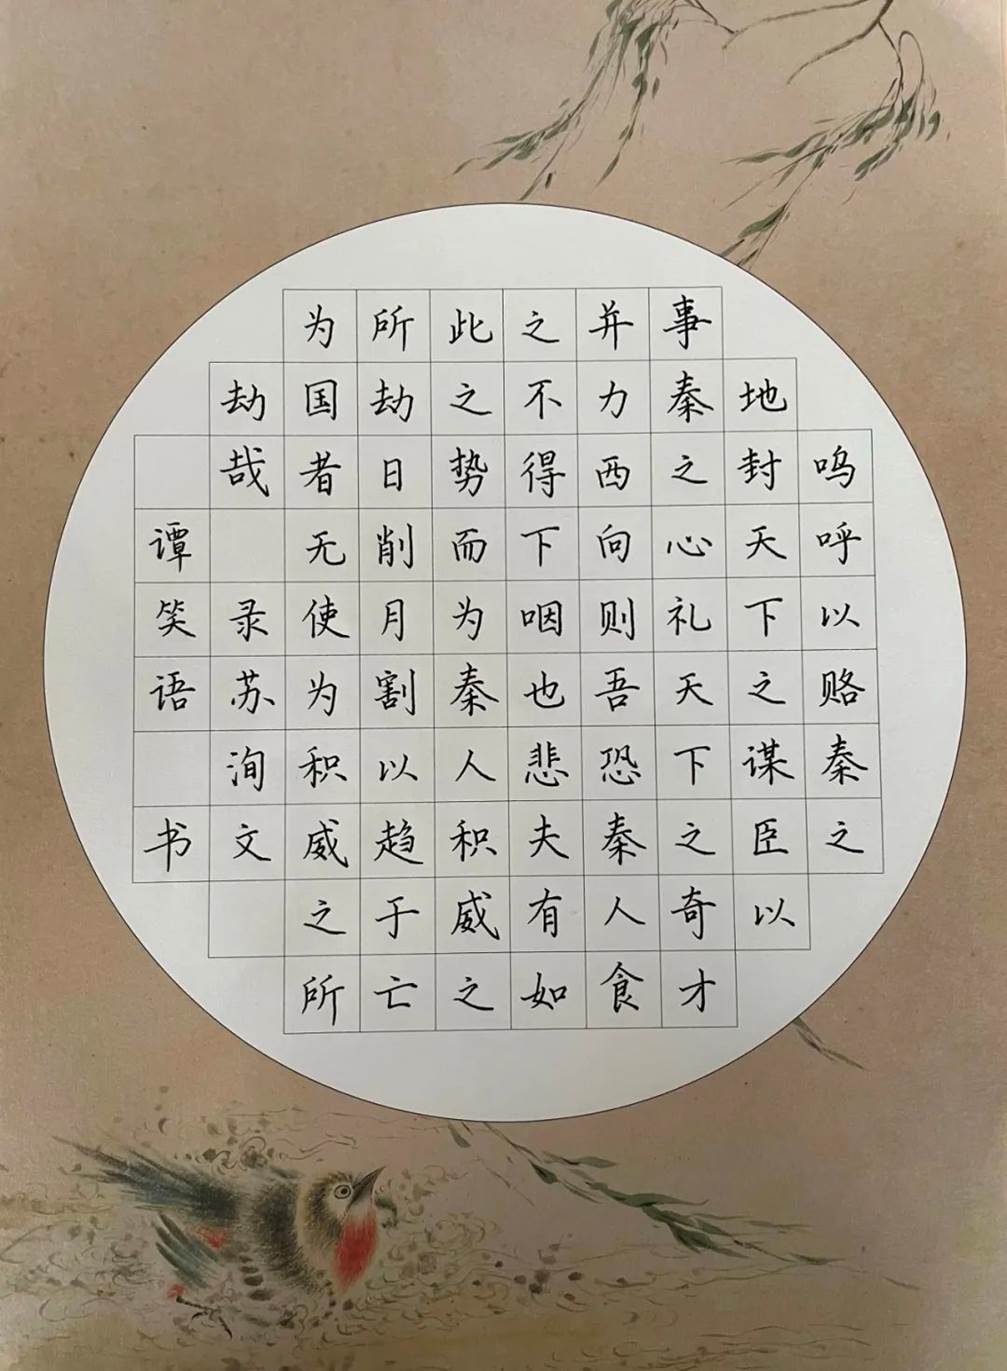 呜呼以赂秦之
地封天下之谋臣以
事秦之心礼天下之奇才
并力西向则吾恐秦人食
之不得下咽也悲夫有如
此之势而为秦人积威之
所劫日削月割以趋于亡
为国者无使为积威之所
劫哉 录苏洵文
谭笑语 书